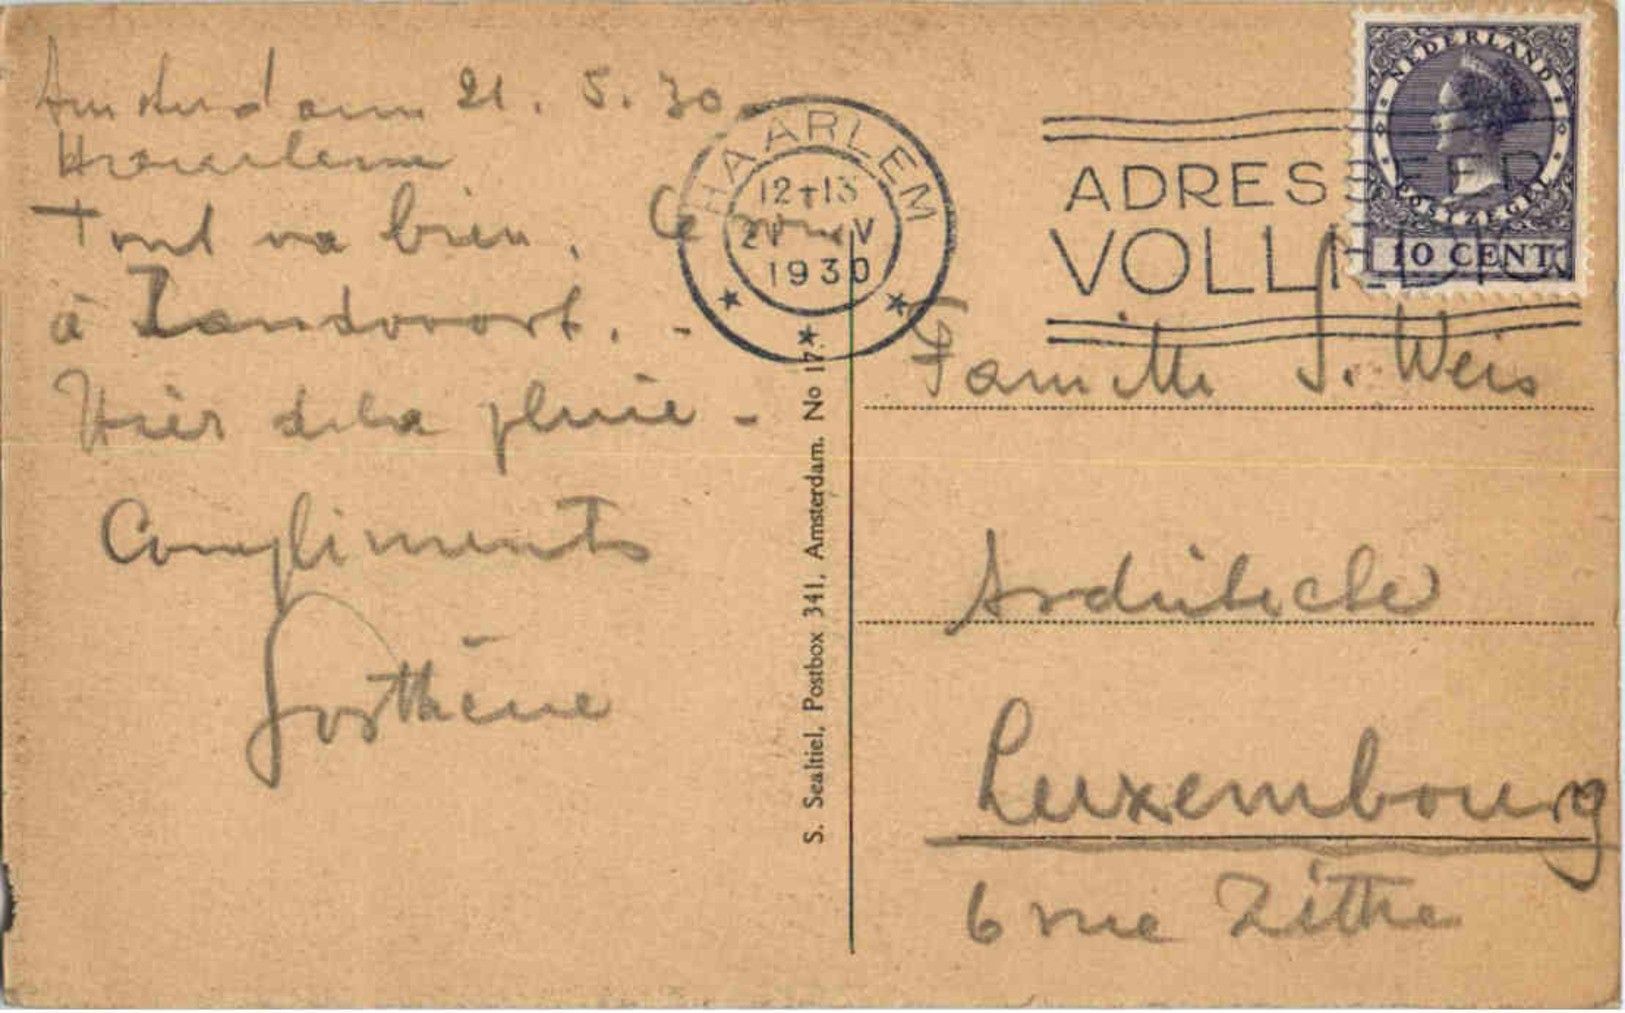 Amsterdam 21. 5. 30
Haarlem
Tout va bien. Ce
à Zandvoort. -
Hier de la pluie -
Compliments
Sosthène
HAARLEM
12-13
21 V
1930
ADRES
VOLL
NEDERLAND
POSTZEGEL
10 CENT
S. Sealtiel, Postbox 341, Amsterdam. No 17.
Famille J. Weis
Architecte
Luxembourg
6 rue Zithe